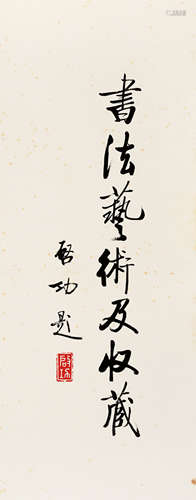 書法藝術及收藏
启功题
啟功